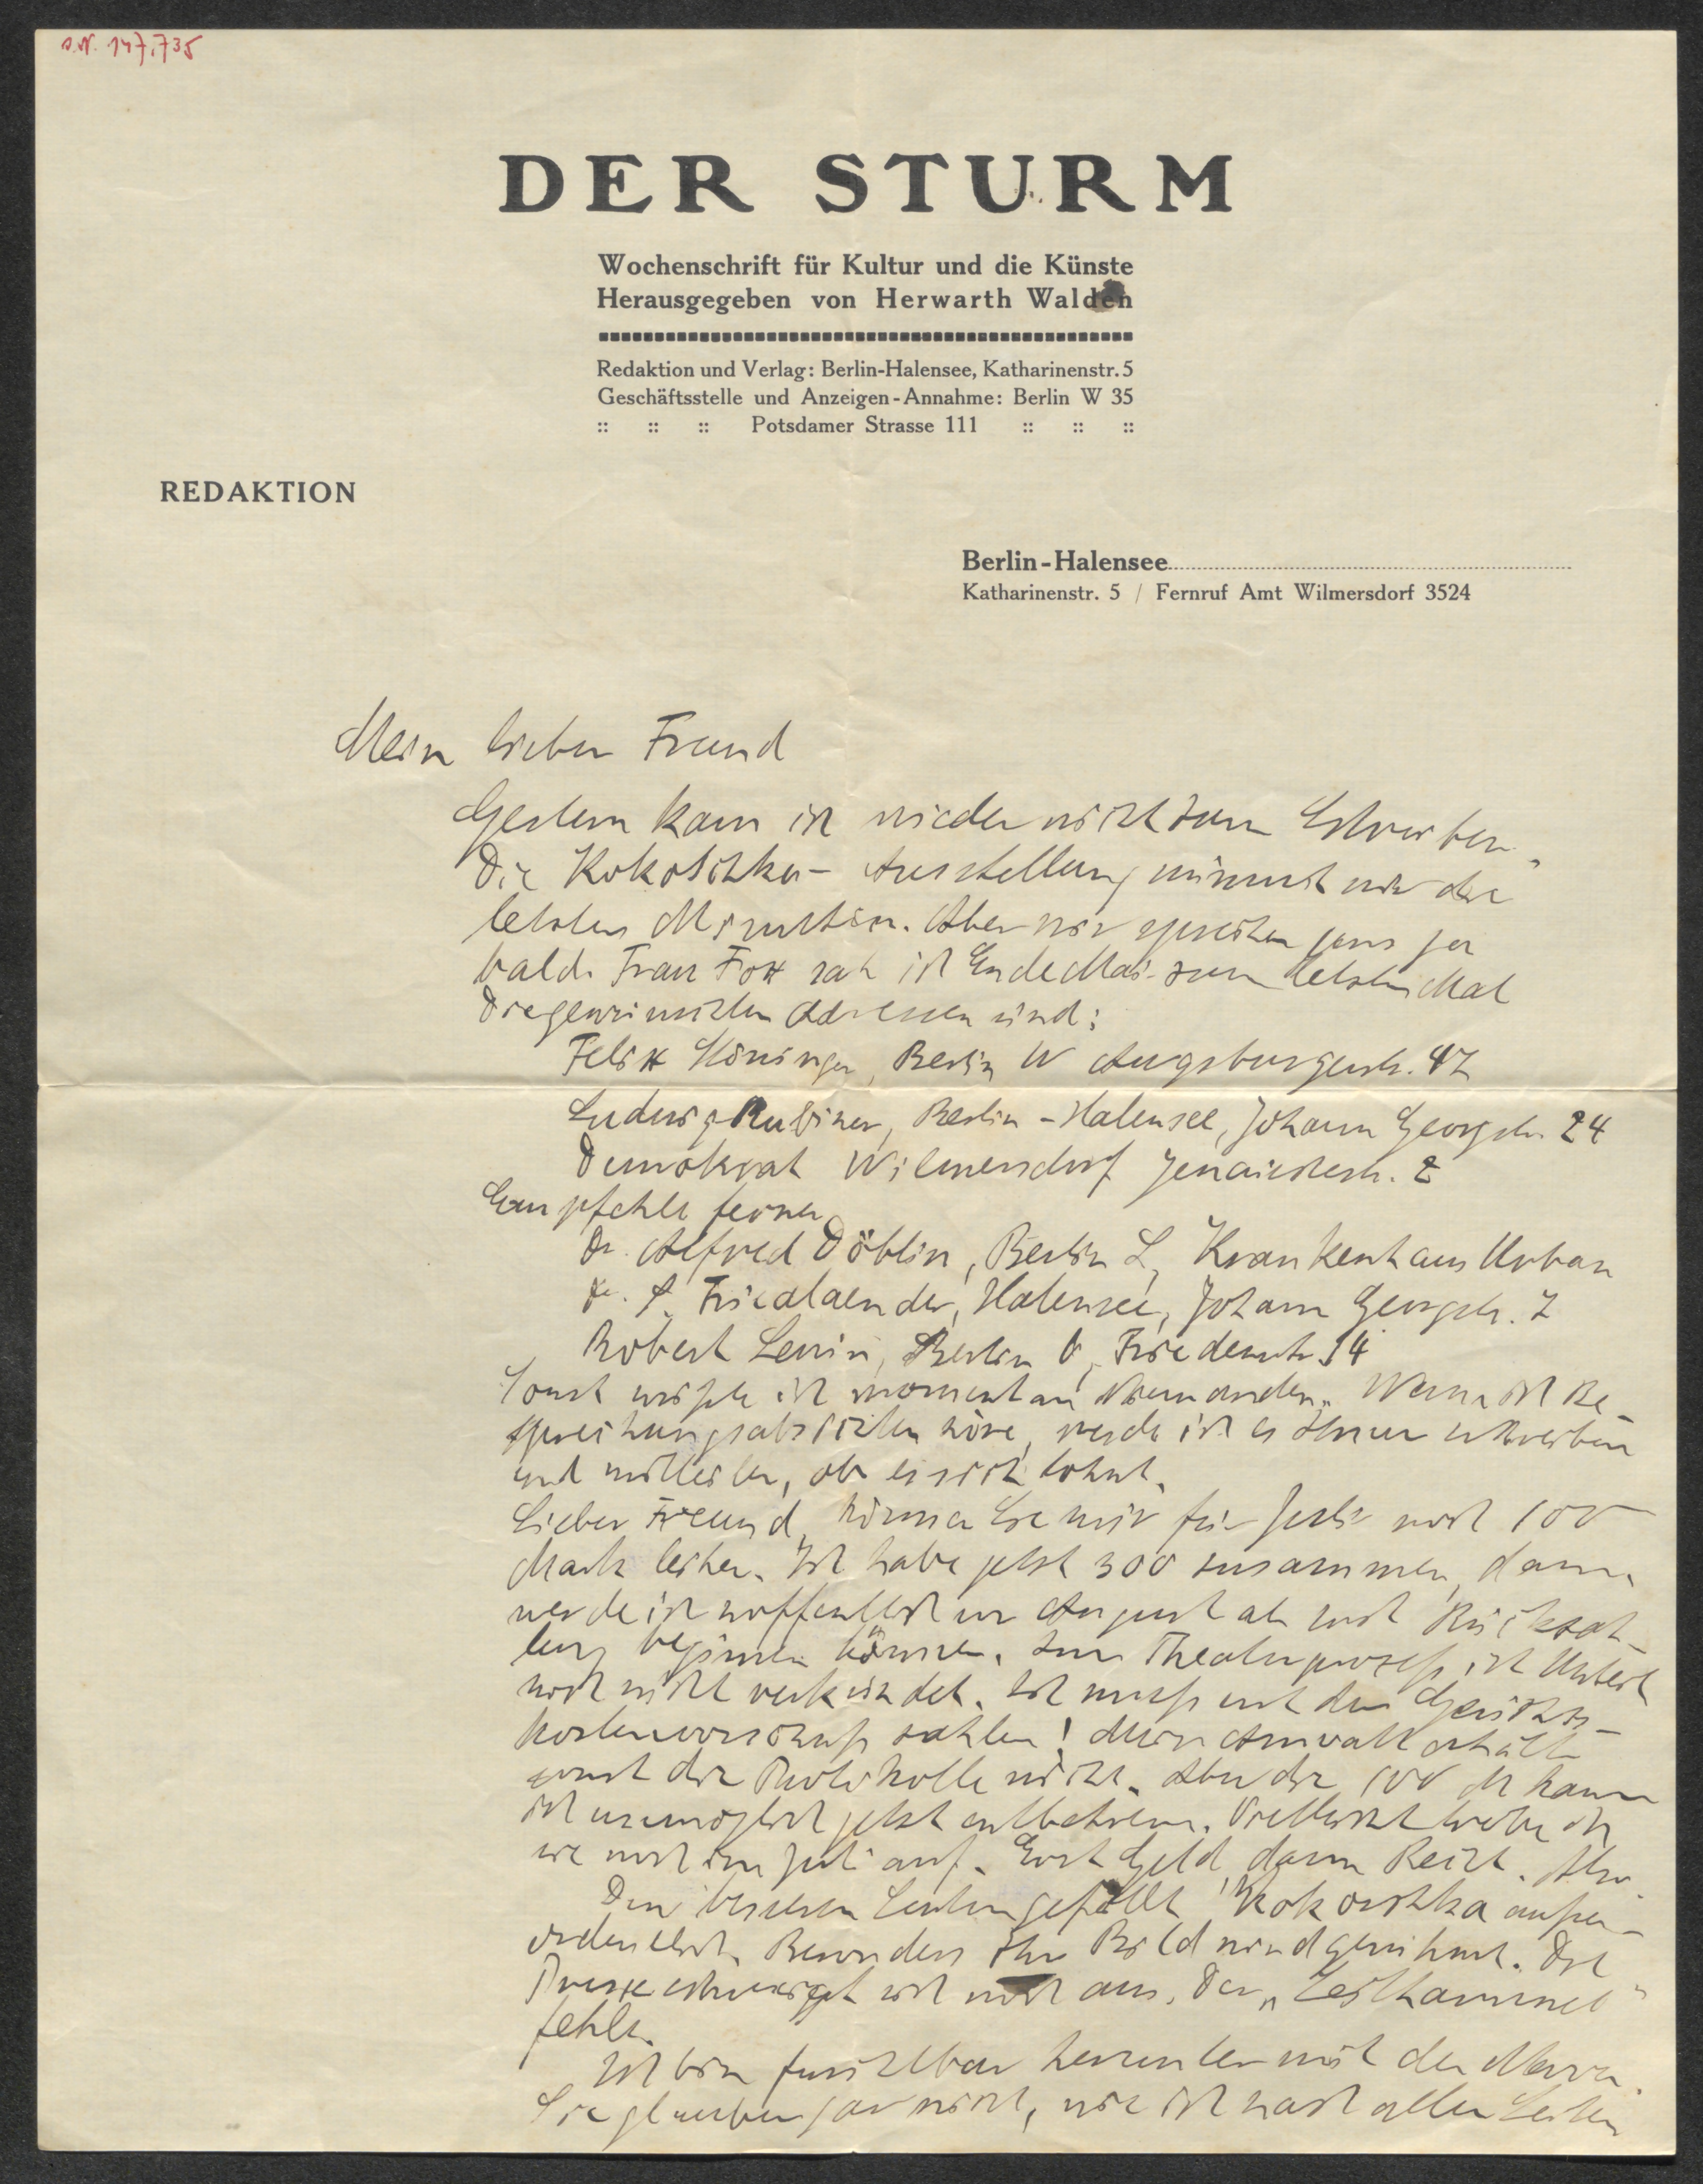 147.735
DER STURM
Wochenschrift für Kultur und die Künste
Herausgegeben von Herwarth Walden
Redaktion und Verlag: Berlin-Halensee, Katharinenstr. 5
Geschäftsstelle und Anzeigen-Annahme: Berlin W 35
:: :: :: Potsdamer Strasse 111 :: :: ::
REDAKTION
Berlin-Halensee
Katharinenstr. 5 / Fernruf Amt Wilmersdorf 3524
Mein lieber Freund
Gestern kam ich wieder nicht zum Schreiben.
Die Kokoschka- Ausstellung nimmt mir die
letzten Minuten. Aber wir sprechen uns ja
bald. Frau Fox sah ich Ende Mai zum letzten Mal
Die gewünschten Adressen sind:
Felix Stössinger, Berlin W Augsburgerstr. 47
Ludwig Rubiner, Berlin-Halensee, Johann Georgstr. 24
Demokrat Wilmersdorf Jenaischestr. 2
Empfehle ferner
Dr. Alfred Döblin, Berlin S, Krankenhaus Urban
Dr. S. Friedlaender, Halensee, Johann Georgstr. 7
Robert Lewin, Berlin O, Friedenstr. 14
Sonst wüsste ich momentan Niemanden. Wenn ich Be-
sprechungsabsichten höre, werde ich es Ihnen schreiben
und mitteilen, ob es sich lohnt.
Lieber Freund, können Sie mir für Juli noch 100
Mark leihen. Ich habe jetzt 300 zusammen, dann
werde ich hoffentlich im August ab mit Rückzah-
lung beginnen können. Im Theaterprozeß ist Urteil
noch nicht verkündet. Ich muß erst den Gerichts-
kostenvorschuß zahlen! Mein Anwalt erhält
sonst die Protokolle nicht. Aber die 100 M kann
ich unmöglich jetzt entbehren. Vielleicht treibe ich
sie noch im Juli auf. Erst Geld, dann Recht. Also
Den besseren Leuten gefällt Kokoschka außer-
ordentlich. Besonders Ihr Bild wird gerühmt. Die
Presse schweigt sich noch aus. Der „Leithammel“
fehlt.
Ich bin furchtbar herunter mit den Nerven.
Sie glauben gar nicht, wie ich nach allen Seiten